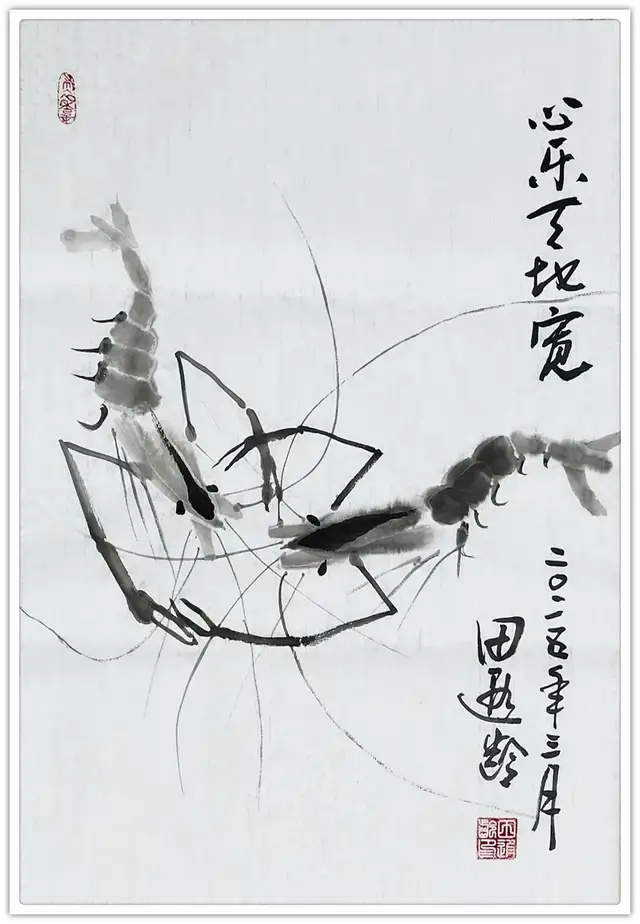 心乐天地宽
二〇一五年三月
田遐龄